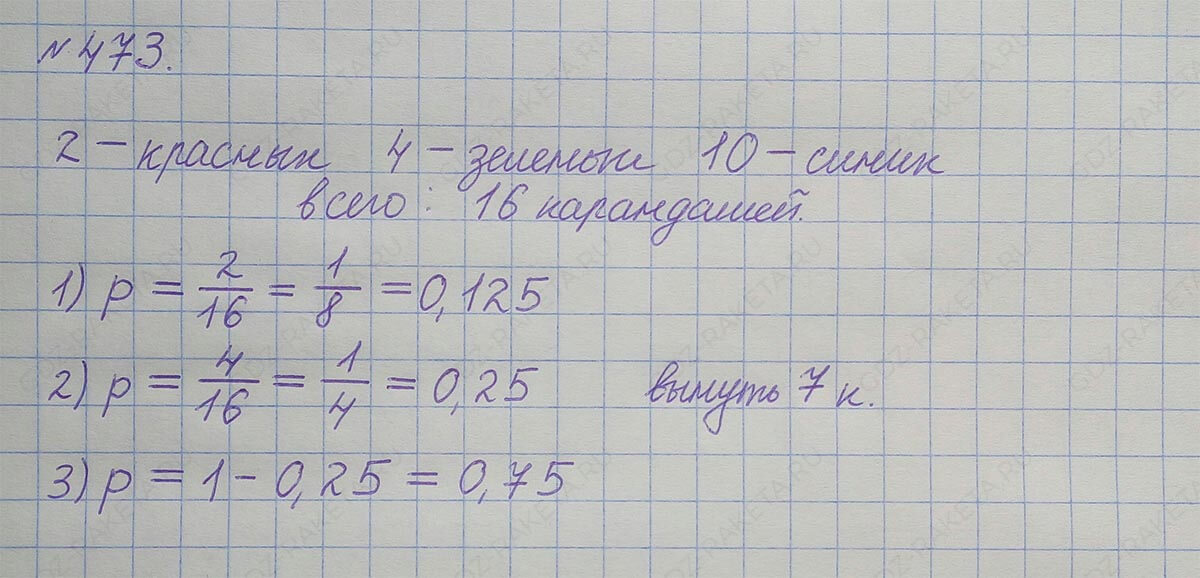 № 473.
2 – красных 4 – зеленых 10 – синих
всего: 16 карандашей.
1) p = 2/16 = 1/8 = 0,125
2) p = 4/16 = 1/4 = 0,25 вынуть 7 к.
3) p = 1 - 0,25 = 0,75
GDZ-RAKETA.RU